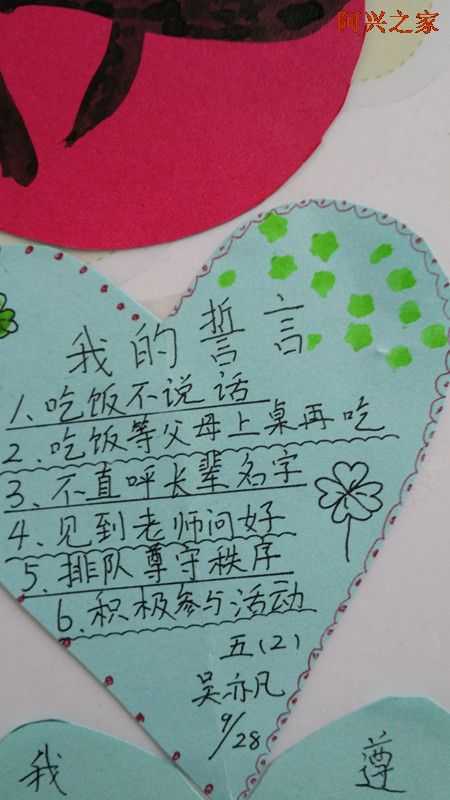 阿兴之家
我的誓言
1、吃饭不说话
2、吃饭等父母上桌再吃
3、不直呼长辈名字
4、见到老师问好
5、排队尊守秩序
6、积极参与活动
五(2)
吴亦凡
9/28
我
遵